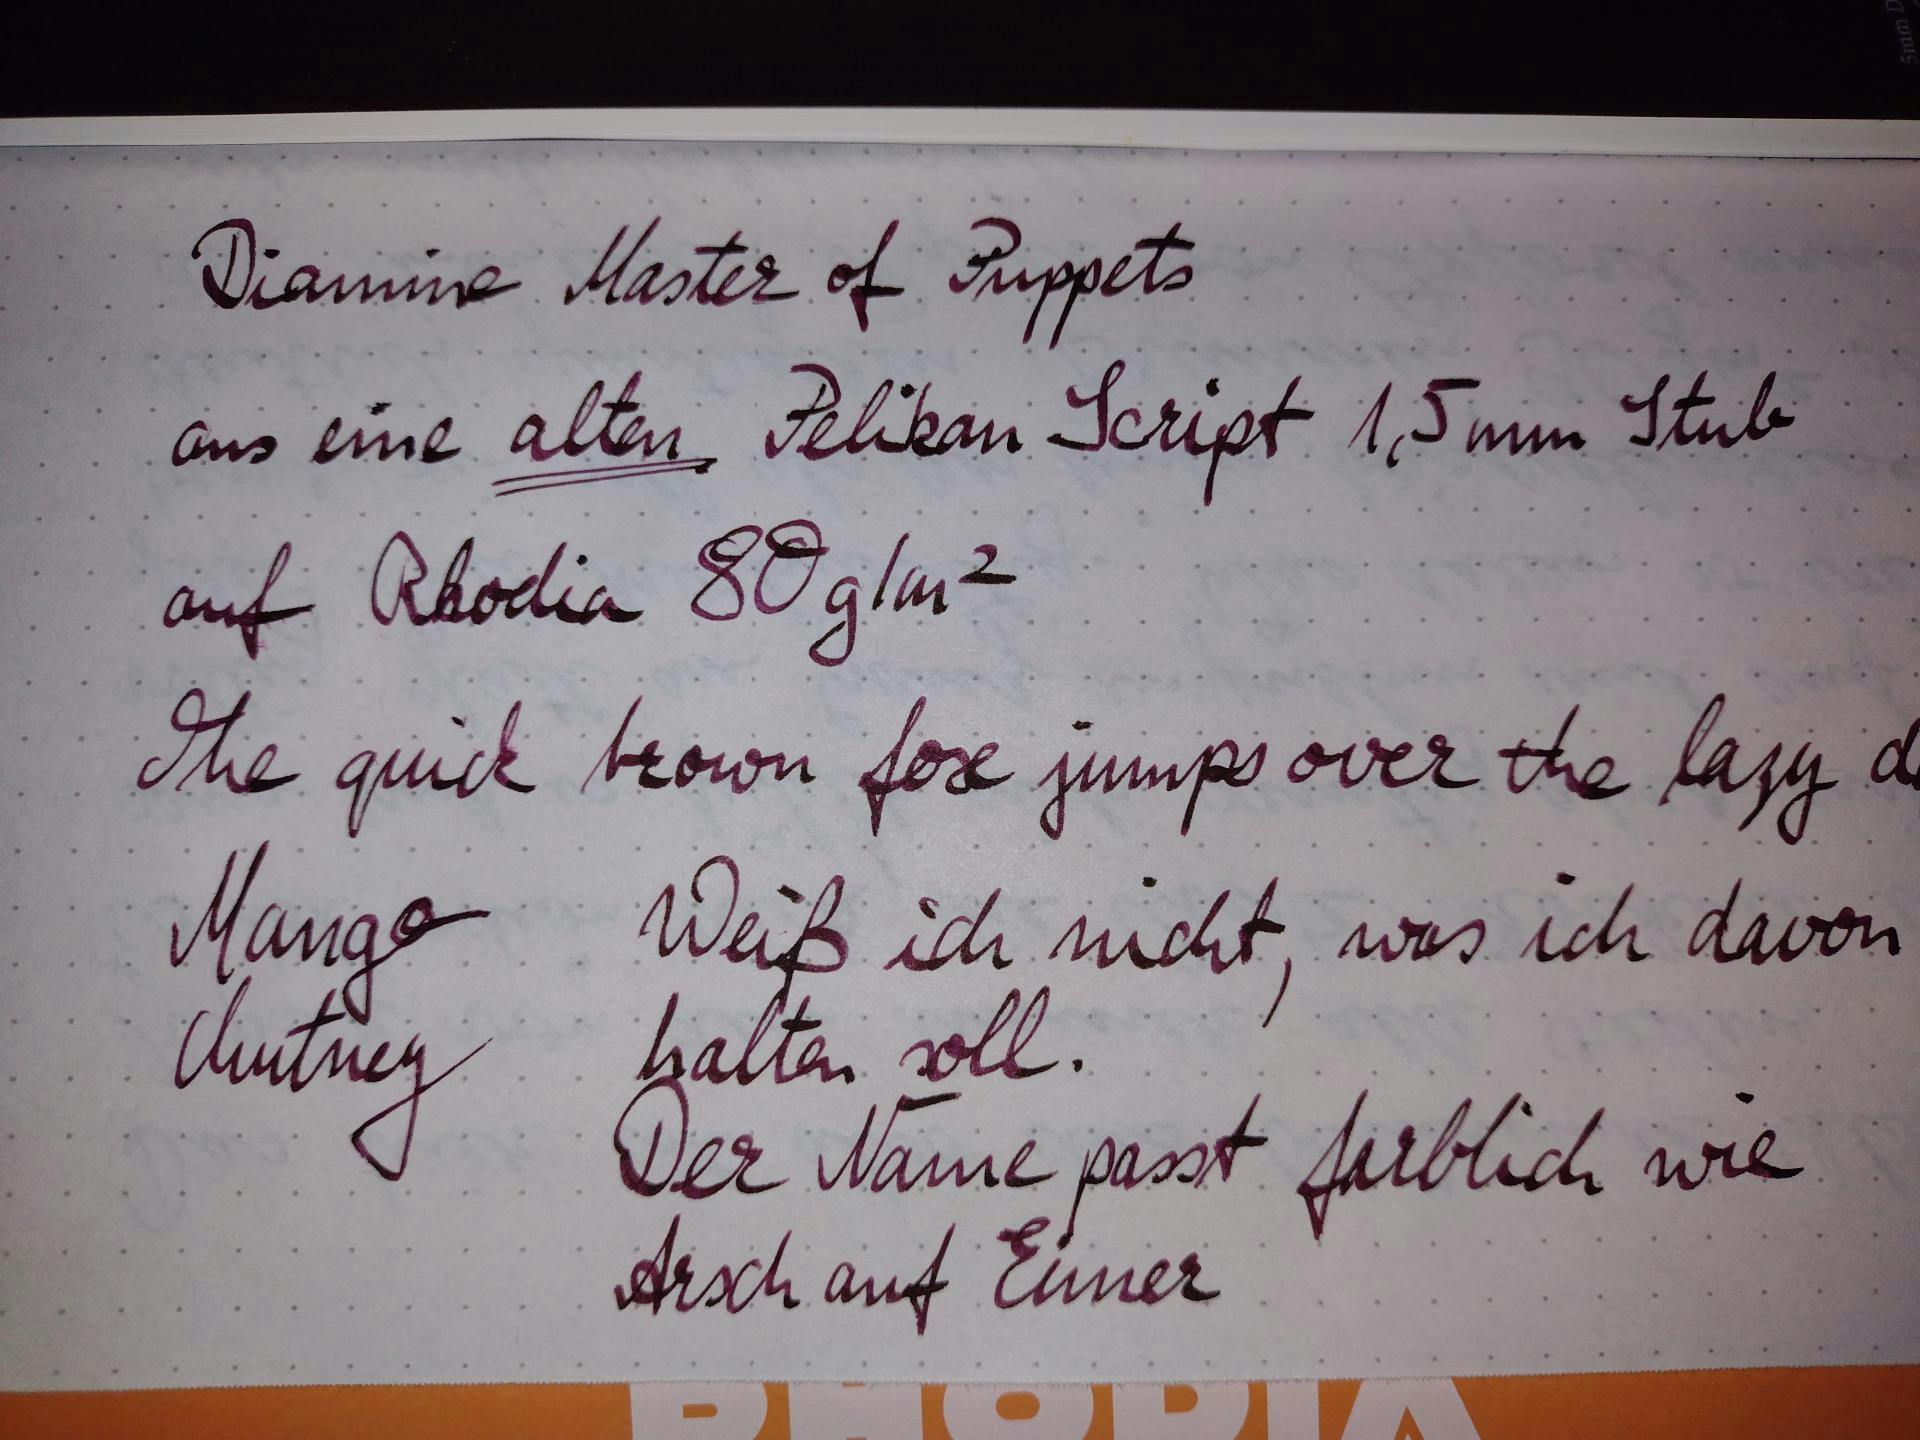 Diamine Master of Puppets
aus eine alten Pelikan Script 1,5mm Stub
auf Rhodia 80g/m²
The quick brown fox jumps over the lazy
Mango Weiß ich nicht, was ich davon
Chutney halten soll.
Der Name passt farblich wie
Arsch auf Eimer
RHODIA